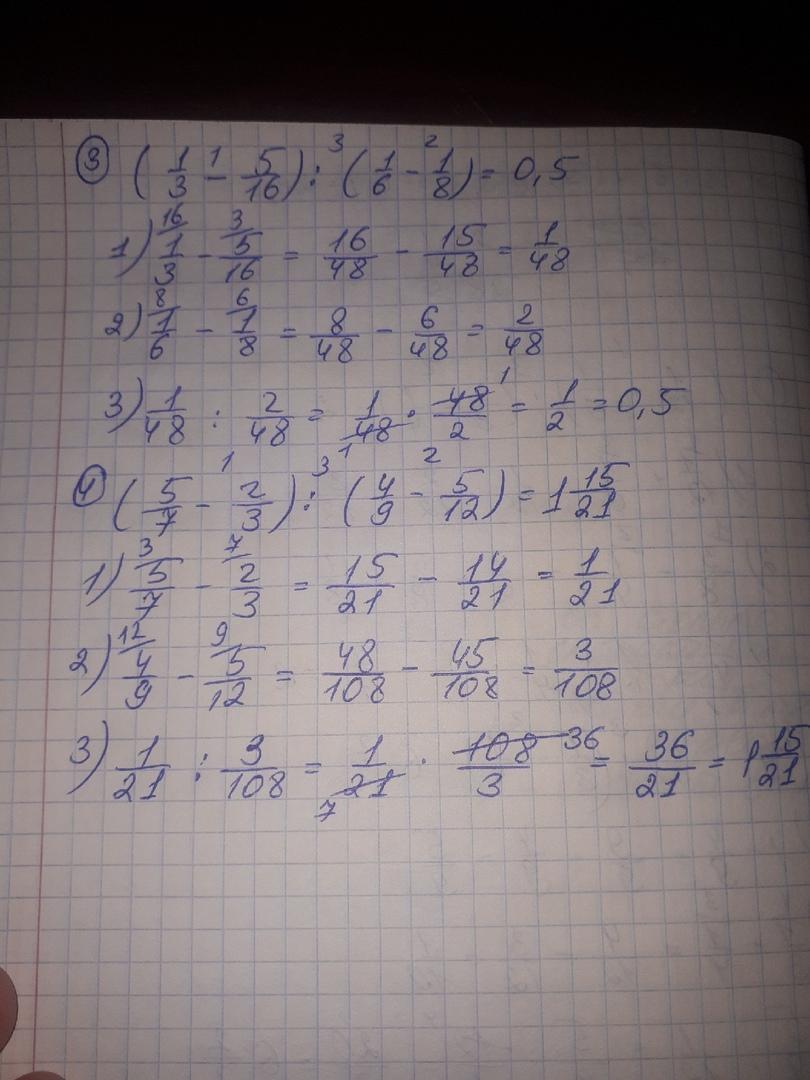 ③ (1/3 - 5/16) : (1/6 - 1/8) = 0,5
1) 1/3 - 5/16 = 16/48 - 15/48 = 1/48
2) 1/6 - 1/8 = 8/48 - 6/48 = 2/48
3) 1/48 : 2/48 = 1/48 · 48/2 = 1/2 = 0,5
④ (5/7 - 2/3) : (4/9 - 5/12) = 1 15/21
1) 5/7 - 2/3 = 15/21 - 14/21 = 1/21
2) 4/9 - 5/12 = 48/108 - 45/108 = 3/108
3) 1/21 : 3/108 = 1/21 · 108/3 = 36/21 = 1 15/21